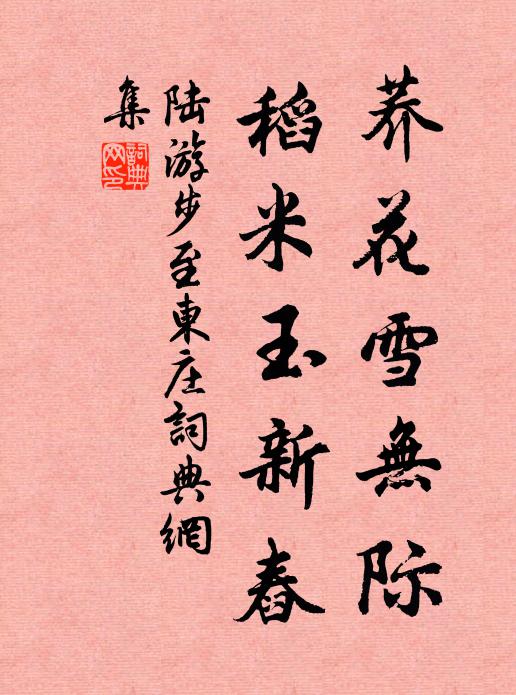 荞花雪無际
稻米玉新舂
陆游步至東庄詞典網
集
詞典网印